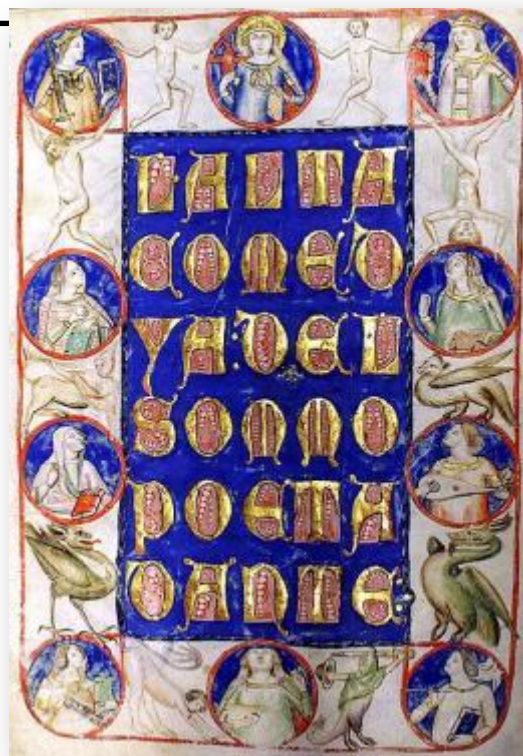 LALTA
COMED
YA·DEL
SOMMO
POETA
DANTE